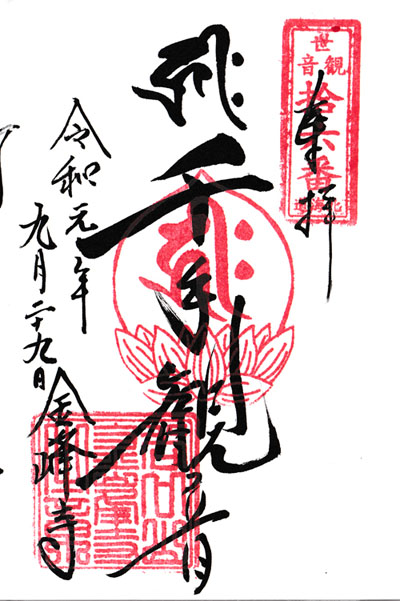 観世音
拾六番
奉拝
千手観音
令和元年
九月二十九日
金峰寺